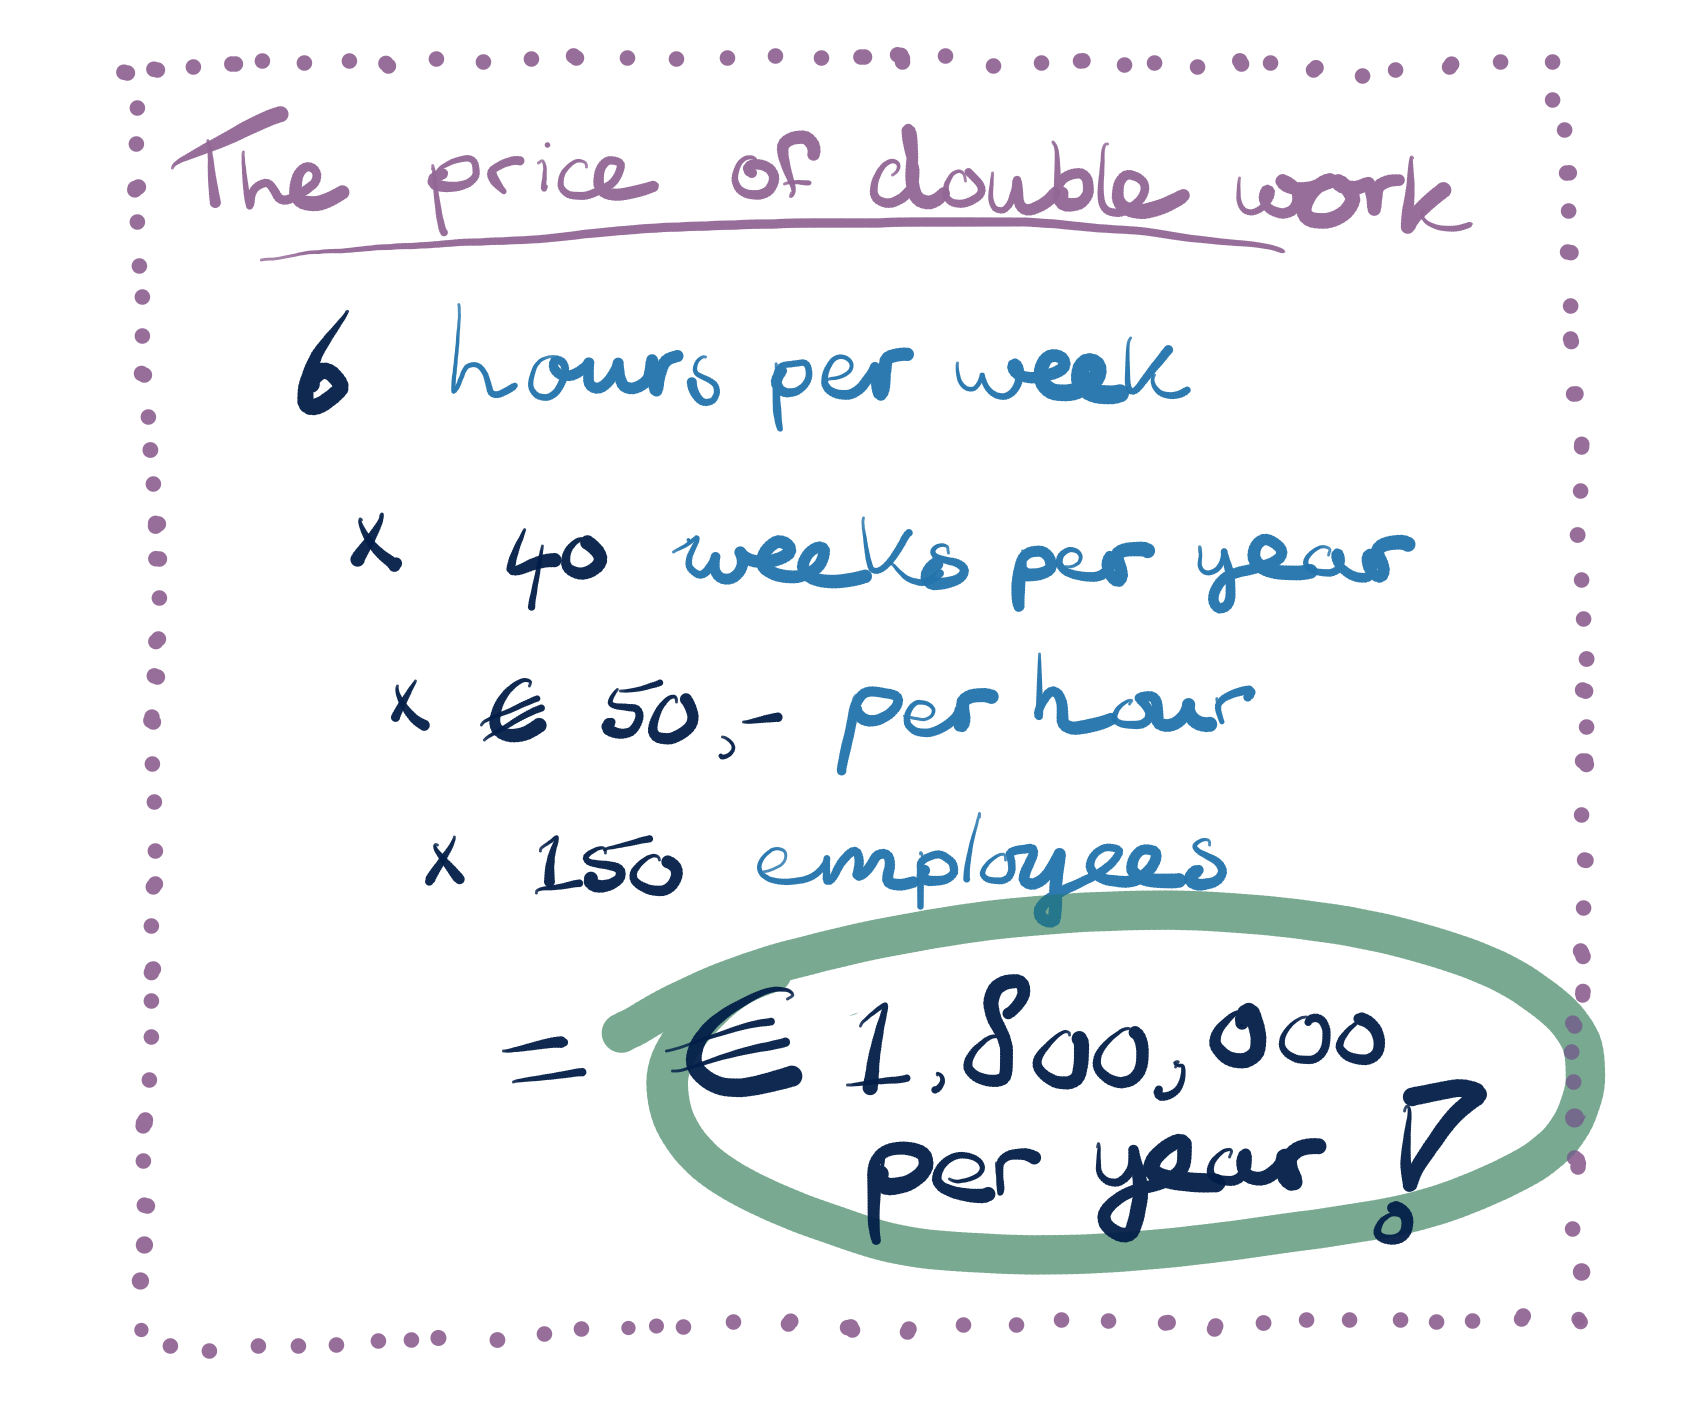 The price of double work
6 hours per week
x 40 weeks per year
x € 50,- per hour
x 150 employees
= € 1,800,000
per year!